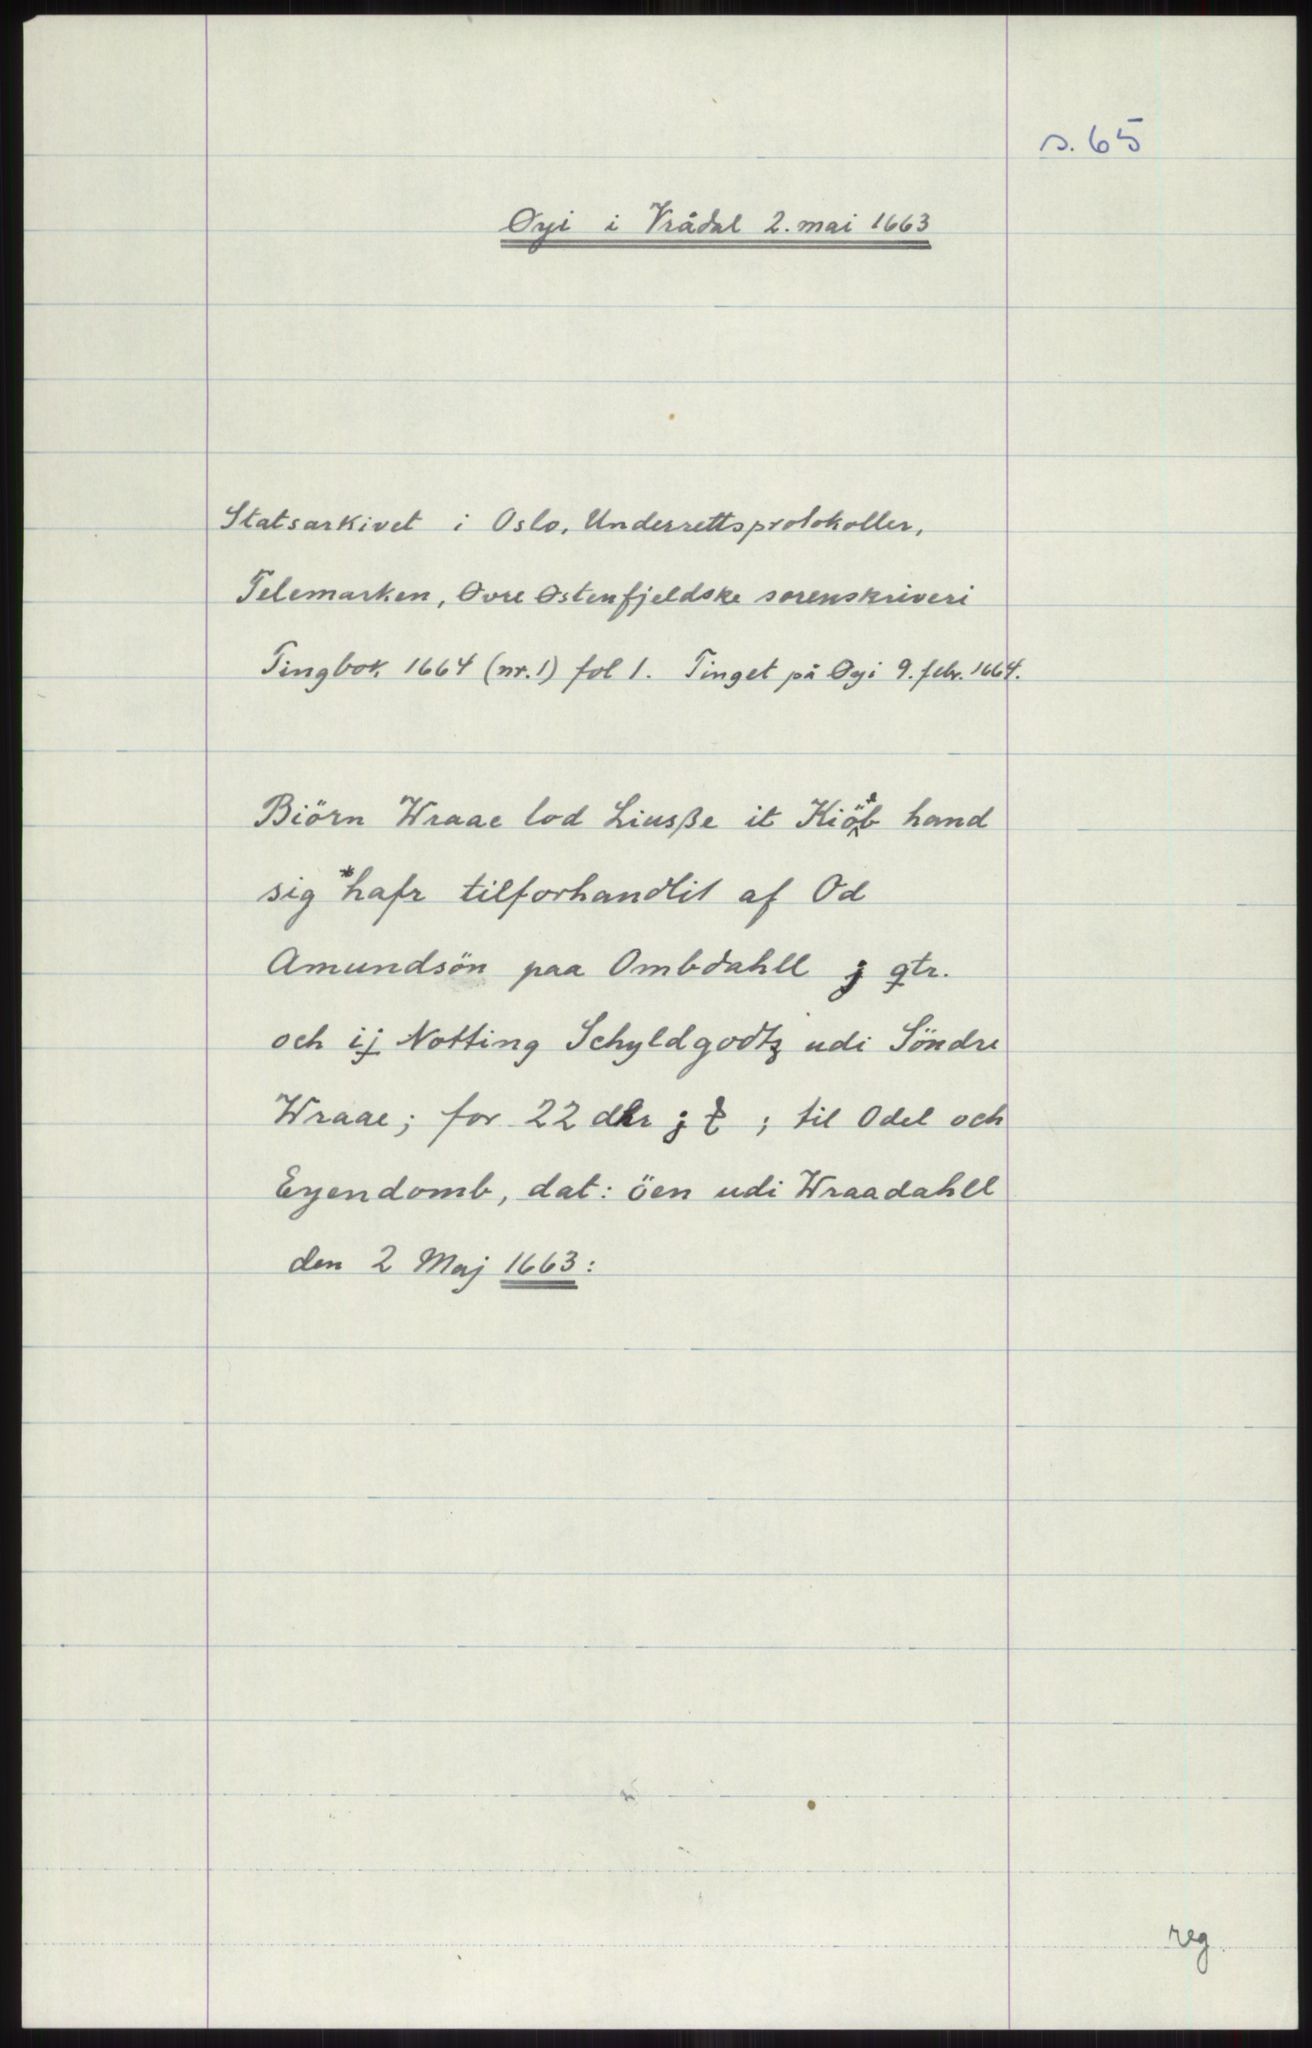 s. 65
Øyi i Vrådal 2. mai 1663
Statsarkivet i Oslo, Underrettsprotokoller,
Telemarken, Øvre Østenfjeldske sorenskriveri
Tingbok 1664 (nr. 1) fol 1. Tinget på Øyi 9. febr. 1664.
Biörn Wraae lod Liusße it Kiöb hand
sig *hafr tilforhandlit af Od
Amundsön paa Ombdahll j qtr.
och ij Notting Schyldgodtz udi Söndre
Wraae; for 22 dlr j ; til Odel och
Eyendomb, dat: öen udi Wraadahll
den 2 Maj 1663:
reg